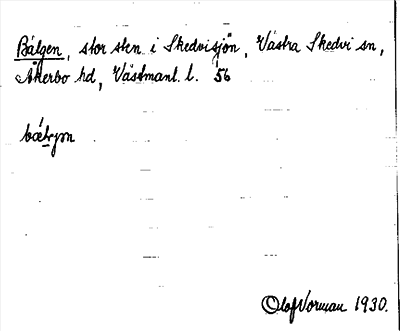 Bälgen, stor sten i Skedvisjön, Västra Skedvi sn,
Åkerbo hd, Västmanl. l. 56
bæ̀lyǝn
Olof Vorman 1930.